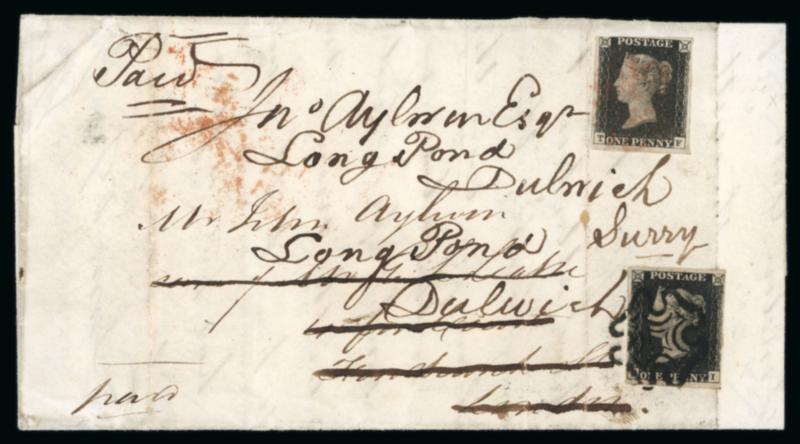 Paid
POSTAGE
Jno Aylwin Esqr
T ONE PENNY F
Long Pond
Dulwich
Mr John Aylwin
Surry
Long Pond
POSTAGE
Dulwich
ONE PENNY I
London.
paid